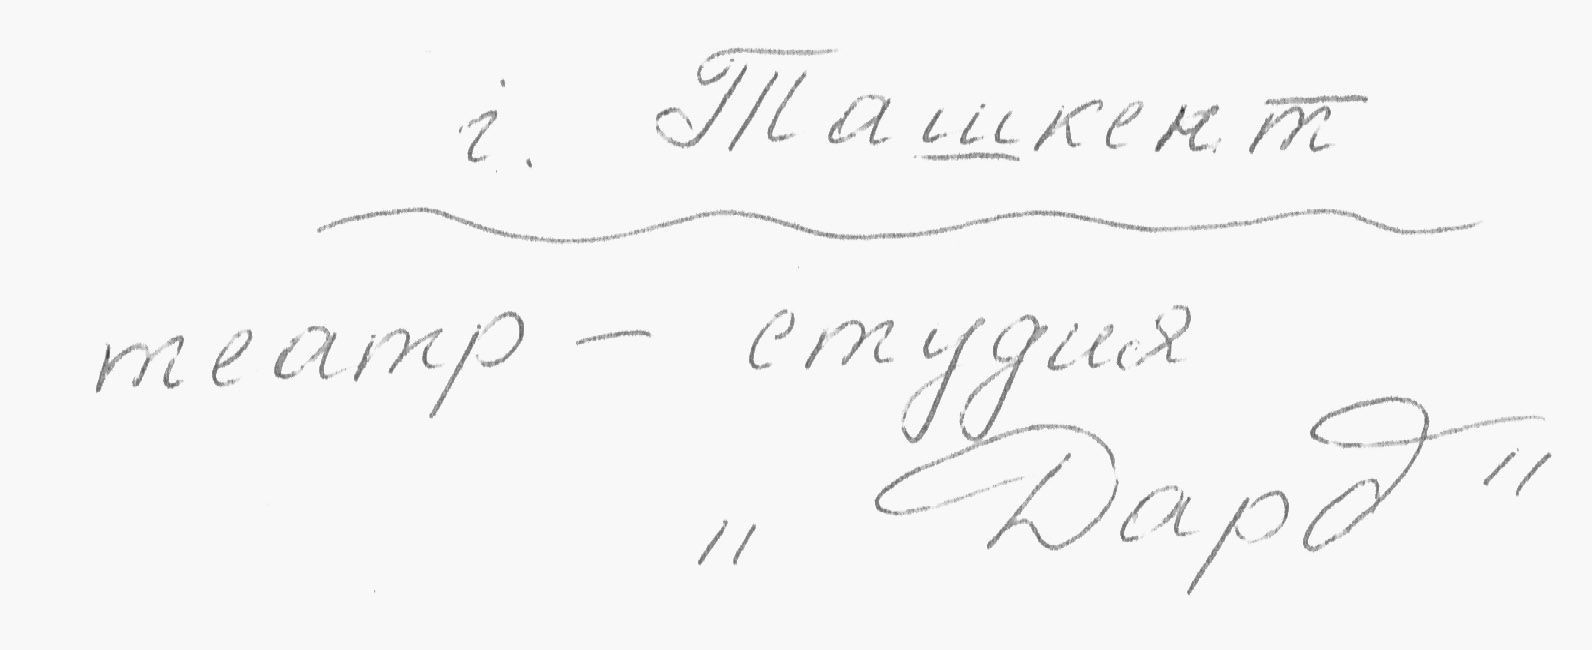 г. Ташкент
театр - студия
"Дард"